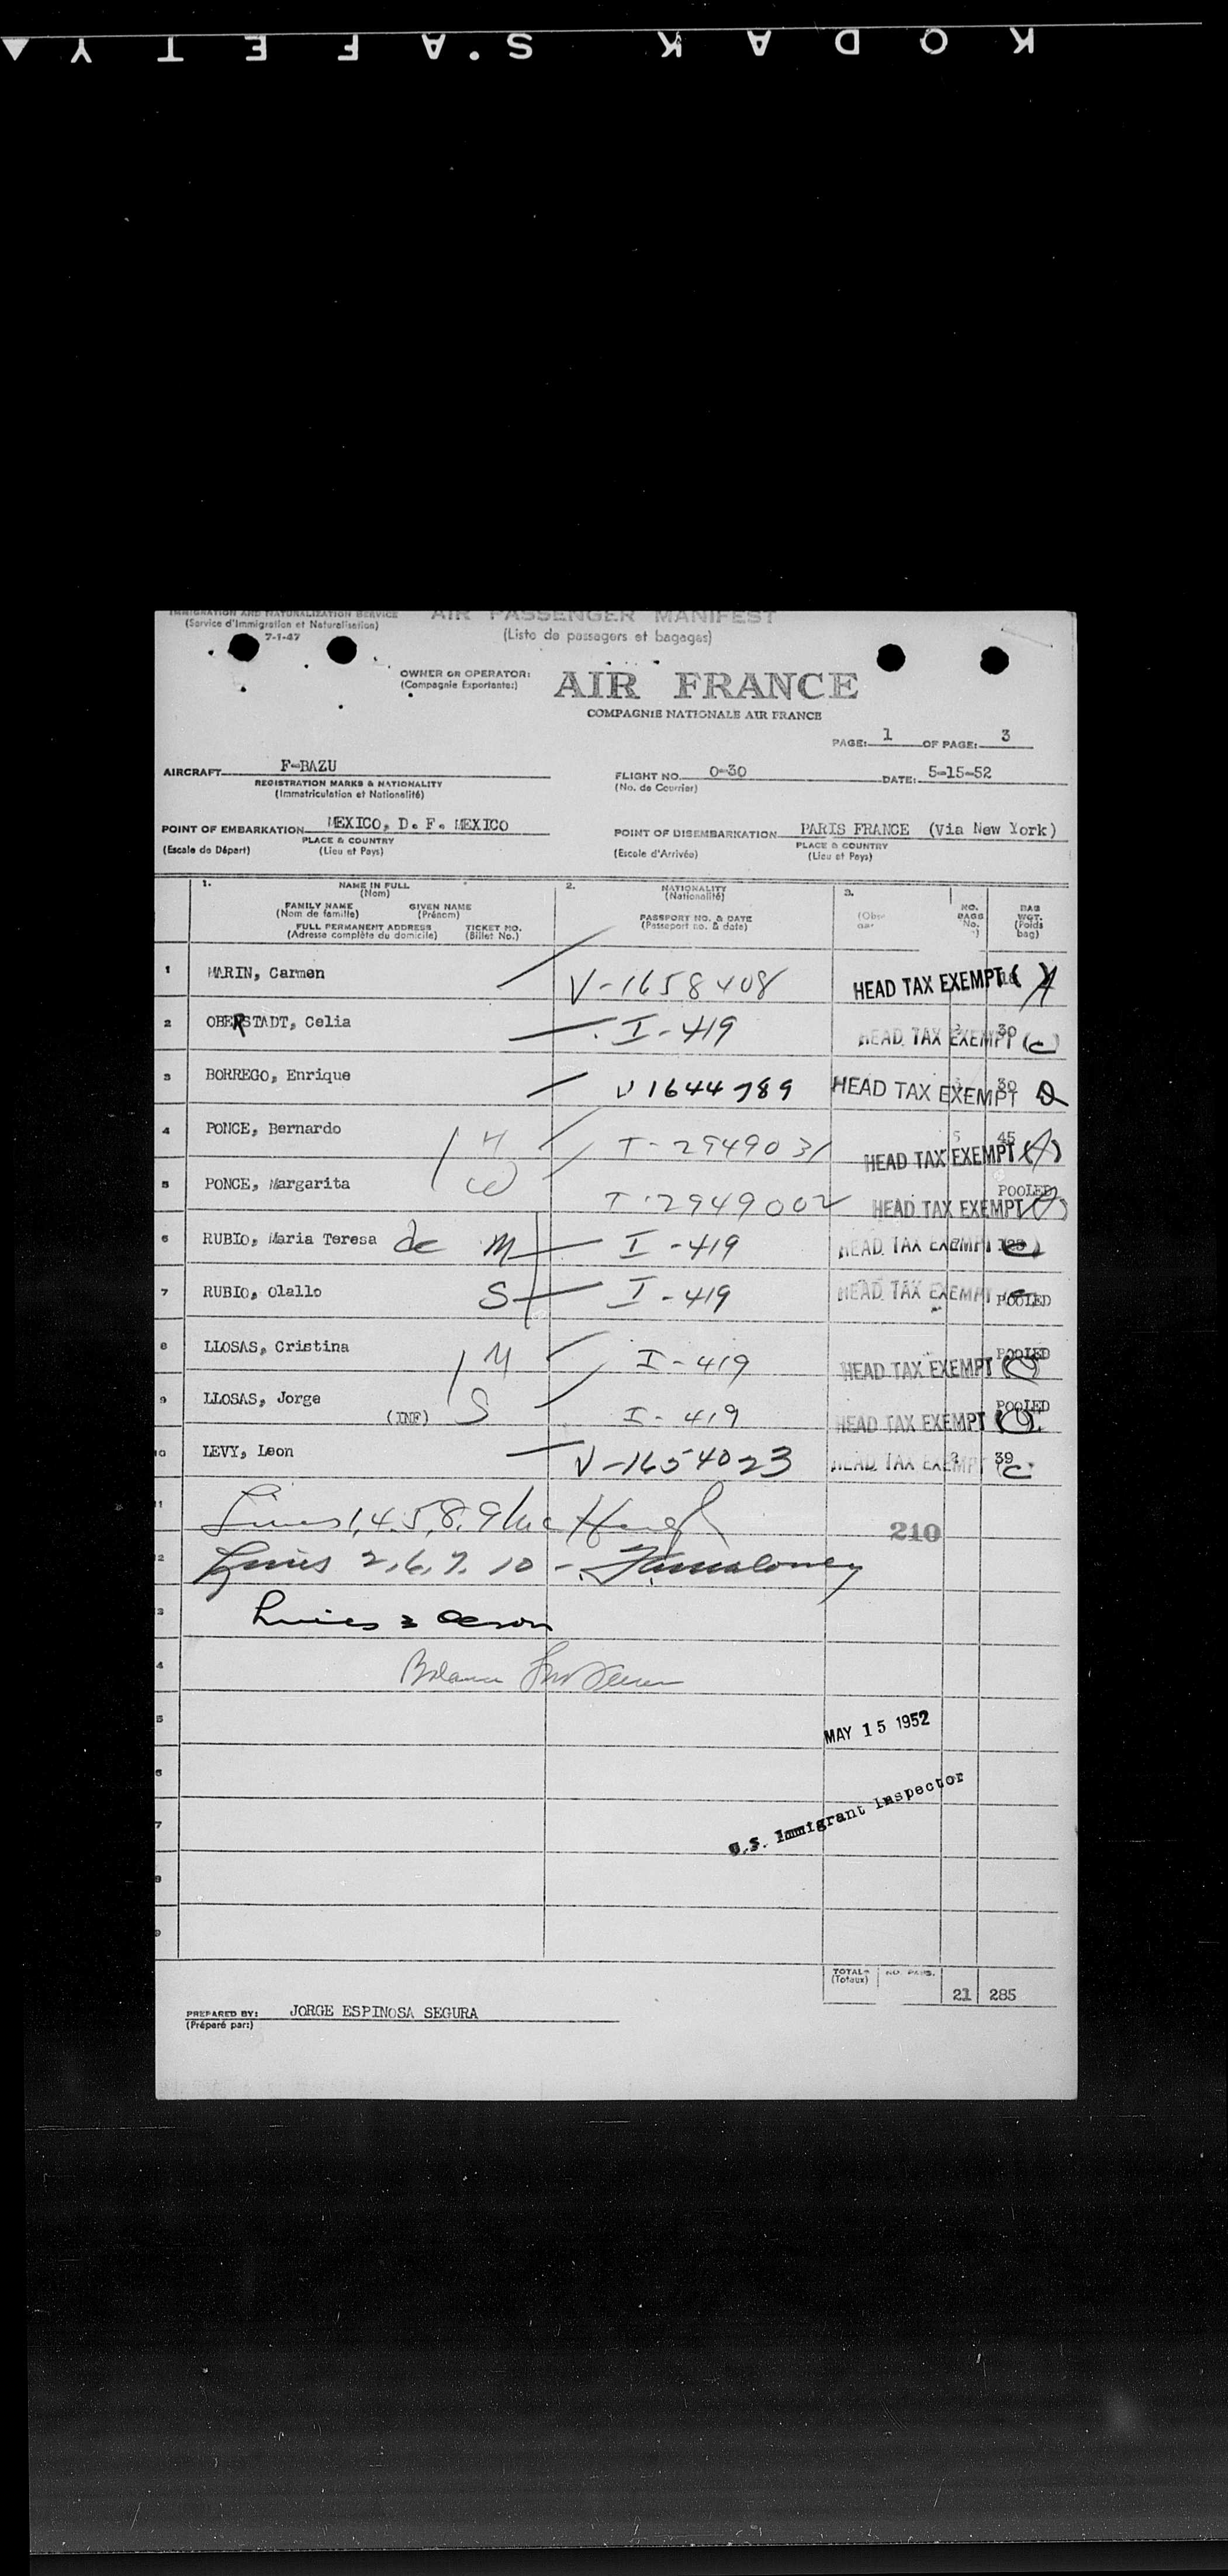 KODAK S.A F E T Y
IMMIGRATION AND NATURALIZATION SERVICE AIR PASSENGER MANIFEST
(Service d'Immigration et Naturalisation) (Liste de passagers et bagages)
7-1-47
OWNER OR OPERATOR: AIR FRANCE
(Compagnie Exportante:)
COMPAGNIE NATIONALE AIR FRANCE
PAGE: 1 OF PAGE: 3
AIRCRAFT F-BAZU FLIGHT NO. 0-30 DATE: 5-15-52
REGISTRATION MARKS & NATIONALITY (No. de Courrier)
(Immatriculation et Nationalité)
POINT OF EMBARKATION MEXICO, D. F. MEXICO POINT OF DISEMBARKATION PARIS FRANCE (Via New York)
PLACE & COUNTRY PLACE & COUNTRY
(Escale de Départ) (Lieu et Pays) (Escale d'Arrivée) (Lieu et Pays)
1. NAME IN FULL 2. NATIONALITY 3.
(Nom) (Nationalité)
FAMILY NAME GIVEN NAME NO. BAGS BAG WGT.
(Nom de famille) (Prénom) PASSPORT NO. & DATE (Poids bag)
FULL PERMANENT ADDRESS TICKET NO. (Passeport no. & date)
(Adresse complète du domicile) (Billet No.)
1 MARIN, Carmen V-1658408 HEAD TAX EXEMPT ( ) A
2 OBERSTADT, Celia I-419 HEAD TAX EXEMPT (C) 30
3 BORREGO, Enrique V 1644789 HEAD TAX EXEMPT 30
4 PONCE, Bernardo H T-2949031 HEAD TAX EXEMPT (A) 5 45
5 PONCE, Margarita W T-2949002 HEAD TAX EXEMPT (A) POOLED
6 RUBIO, Maria Teresa de M I-419 HEAD TAX EXEMPT (C)
7 RUBIO, Olallo S I-419 HEAD TAX EXEMPT POOLED
8 LLOSAS, Cristina M I-419 HEAD TAX EXEMPT POOLED
9 LLOSAS, Jorge (INF) S I-419 HEAD TAX EXEMPT POOLED
10 LEVY, Leon V-1654023 HEAD TAX EXEMPT C 39
11 Lines 1,4,5,8,9 Mc Hugh 210
2 Lines 2,6,7,10 - Maloney
3 Lines 3
4
5 MAY 15 1952
6
7 U.S. Immigrant Inspector
8
9
TOTAL (Totaux) NO. PAPS. 21 285
PREPARED BY: JORGE ESPINOSA SEGURA
(Préparé par:)